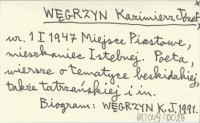 WĘGRZYN Kazimierz Józef,
ur. 1 I 1947 Miejsce Piastowe,
mieszkaniec Istebnej. Poeta,
wiersze o tematyce beskidzkiej,
także tatrzańskiej i in.
Biogram: WĘGRZYN K.J. 1991.